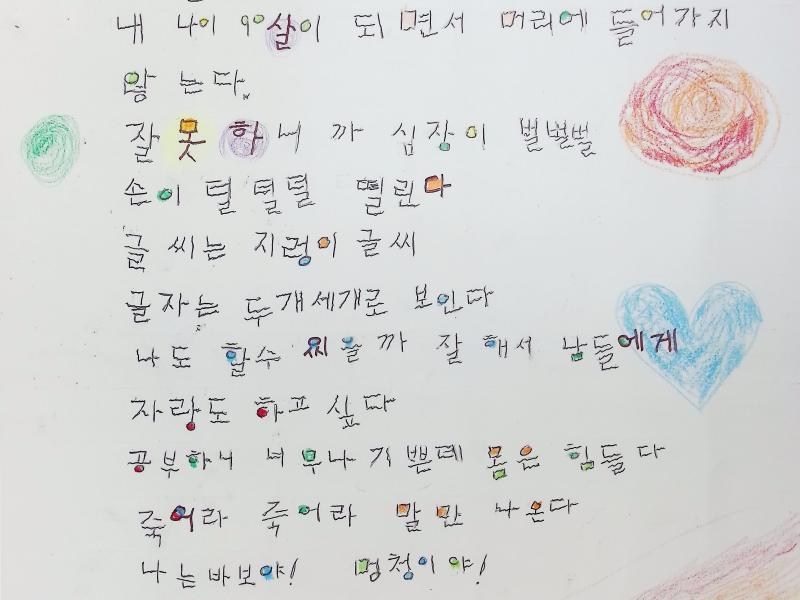 내 나이 90살이 되면서 머리에 들어가지
않는다.
잘 못하니까 심장이 벌벌벌
손이 덜덜덜 떨린다
글씨는 지렁이 글씨
글자는 두개세개로 보인다
나도 할수 있을까 잘해서 남들에게
자랑도 하고 싶다
공부하니 너무나 기쁜데 몸은 힘들다
죽어라 죽어라 말만 나온다
나는 바보야! 멍청이야!